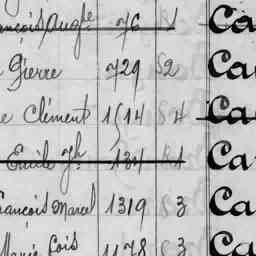 ançois Augte 76 S1 Ca
Pierre 729 S2 Ca
e Clément 1514 S4 Ca
Emile Jh 134 S1 Ca
rançois Marcel 1319 S3 Ca
Marie Lois 1178 S3 Ca